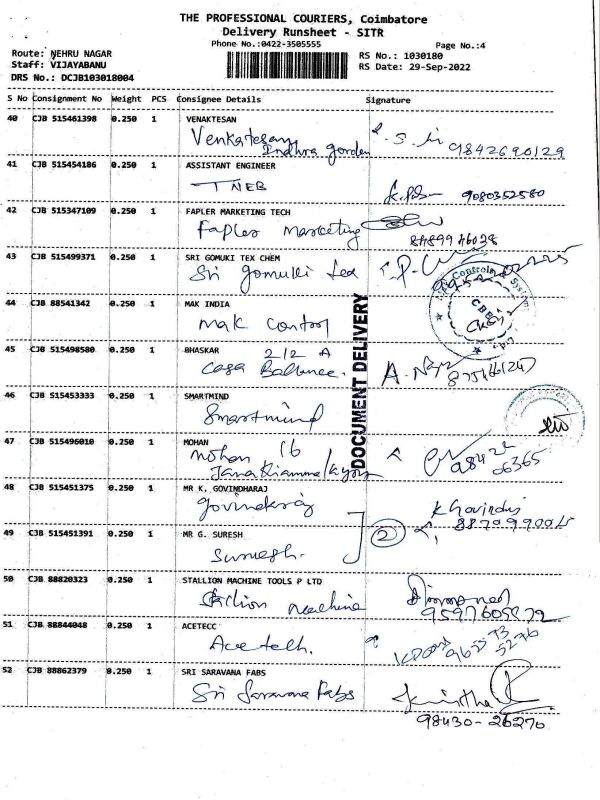 THE PROFESSIONAL COURIERS, Coimbatore
Delivery Runsheet - SITR
Phone No.:0422-3505555
Page No.:4
Route: NEHRU NAGAR
RS No.: 1030180
Staff: VIJAYABANU
RS Date: 29-Sep-2022
DRS No.: DCJB103018004
S No Consignment No Weight PCS Consignee Details Signature
40 CJB 515461398 0.250 1 VENAKTESAN
Venkatesan
9842690129
41 CJB 515454186 0.250 1 ASSISTANT ENGINEER
TNEB
9080352580
42 CJB 515347109 0.250 1 FAPLER MARKETING TECH
Fapler Marketing
43 CJB 515499371 0.250 1 SRI GOMUKI TEX CHEM
Sri gomuki tex
44 CJB 88541342 0.250 1 MAK INDIA
Mak control
DOCUMENT DELIVERY
45 CJB 515498580 0.250 1 BHASKAR
2/2 A
Casa
46 CJB 515453333 0.250 1 SMARTMIND
Smartmind
47 CJB 515496010 0.250 1 MOHAN
Mohan 16
48 CJB 515451375 0.250 1 MR K. GOVINDHARAJ
govindaraj
49 CJB 515451391 0.250 1 MR G. SURESH
2
Suresh.
50 CJB 88820323 0.250 1 STALLION MACHINE TOOLS P LTD
Stallion Machine
51 CJB 88844048 0.250 1 ACETECC
Acetech.
52 CJB 88862379 0.250 1 SRI SARAVANA FABS
Sri Saravana Fabs
98430-26270